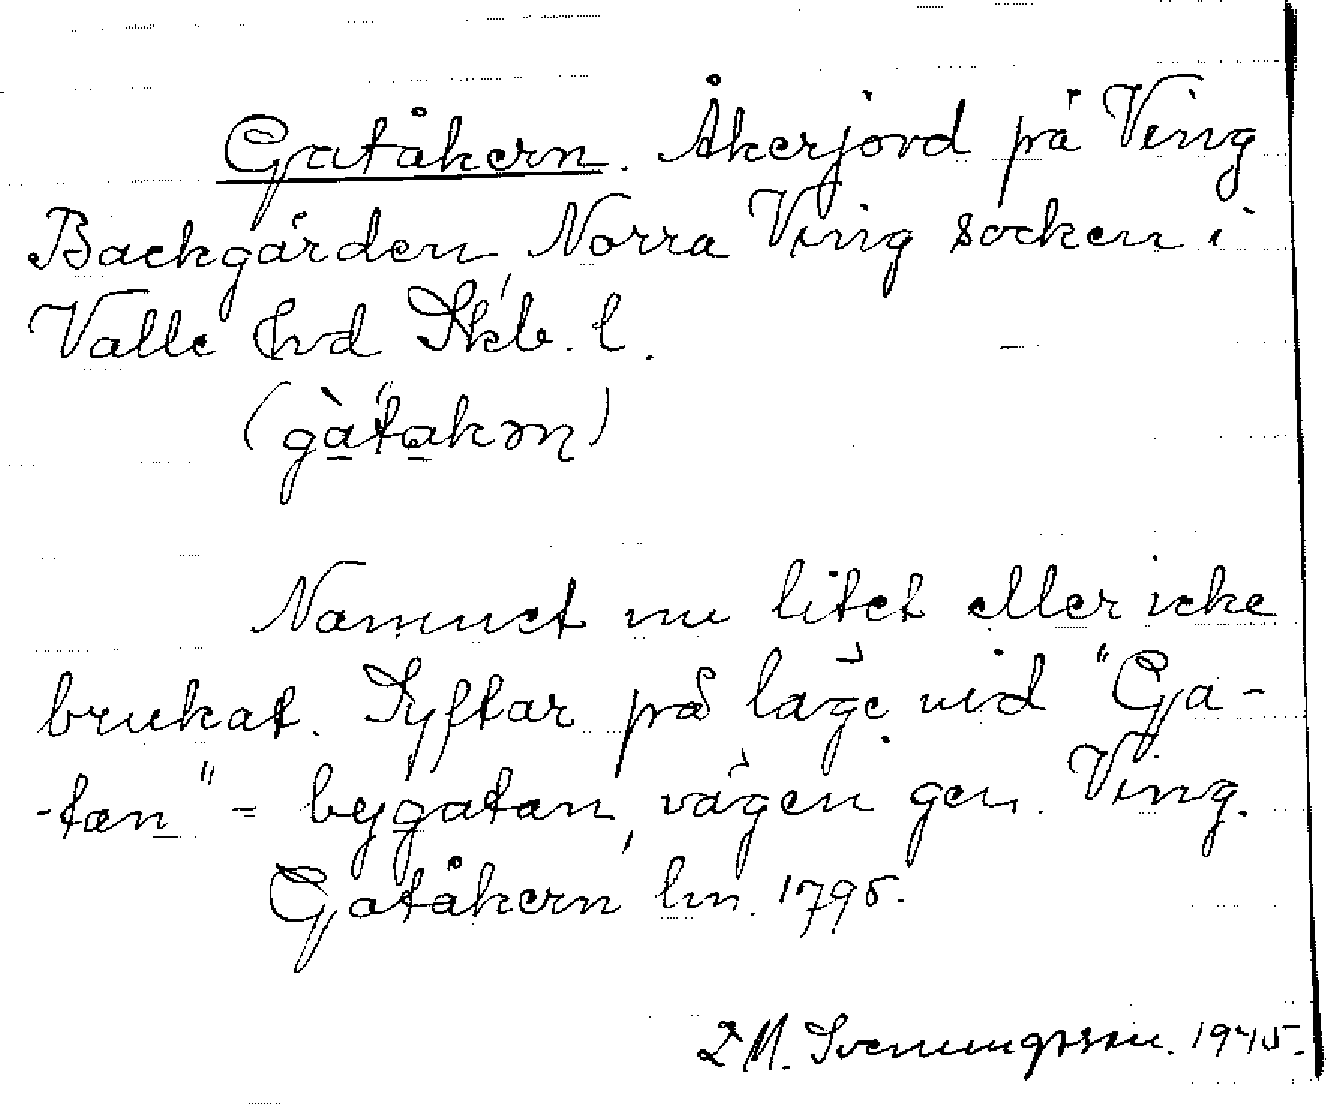 Gatåkern. Åkerjord på Ving
Backgården, Norra Ving socken i
Valle hd Skb. l.
(gàtakən)
Namnet nu litet eller icke
brukat. Syftar på läge vid "Ga-
-tan" = bygatan, vägen gen. Ving.
Gatåkern lm. 1795.
S M. Svenungsson. 1945.